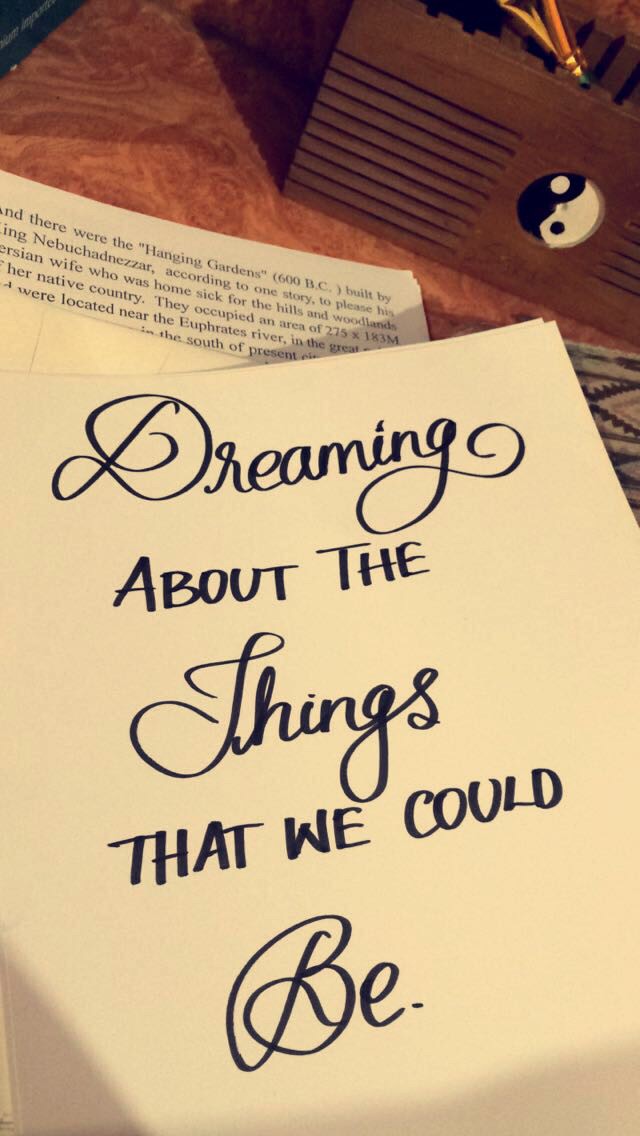 And there were the "Hanging Gardens" (600 B.C. ) built by
King Nebuchadnezzar, according to one story, to please his
Persian wife who was home sick for the hills and woodlands
her native country. They occupied an area of 275 x 183M
were located near the Euphrates river, in the great
in the south of present
Dreaming
ABOUT THE
Things
THAT WE COULD
Be.